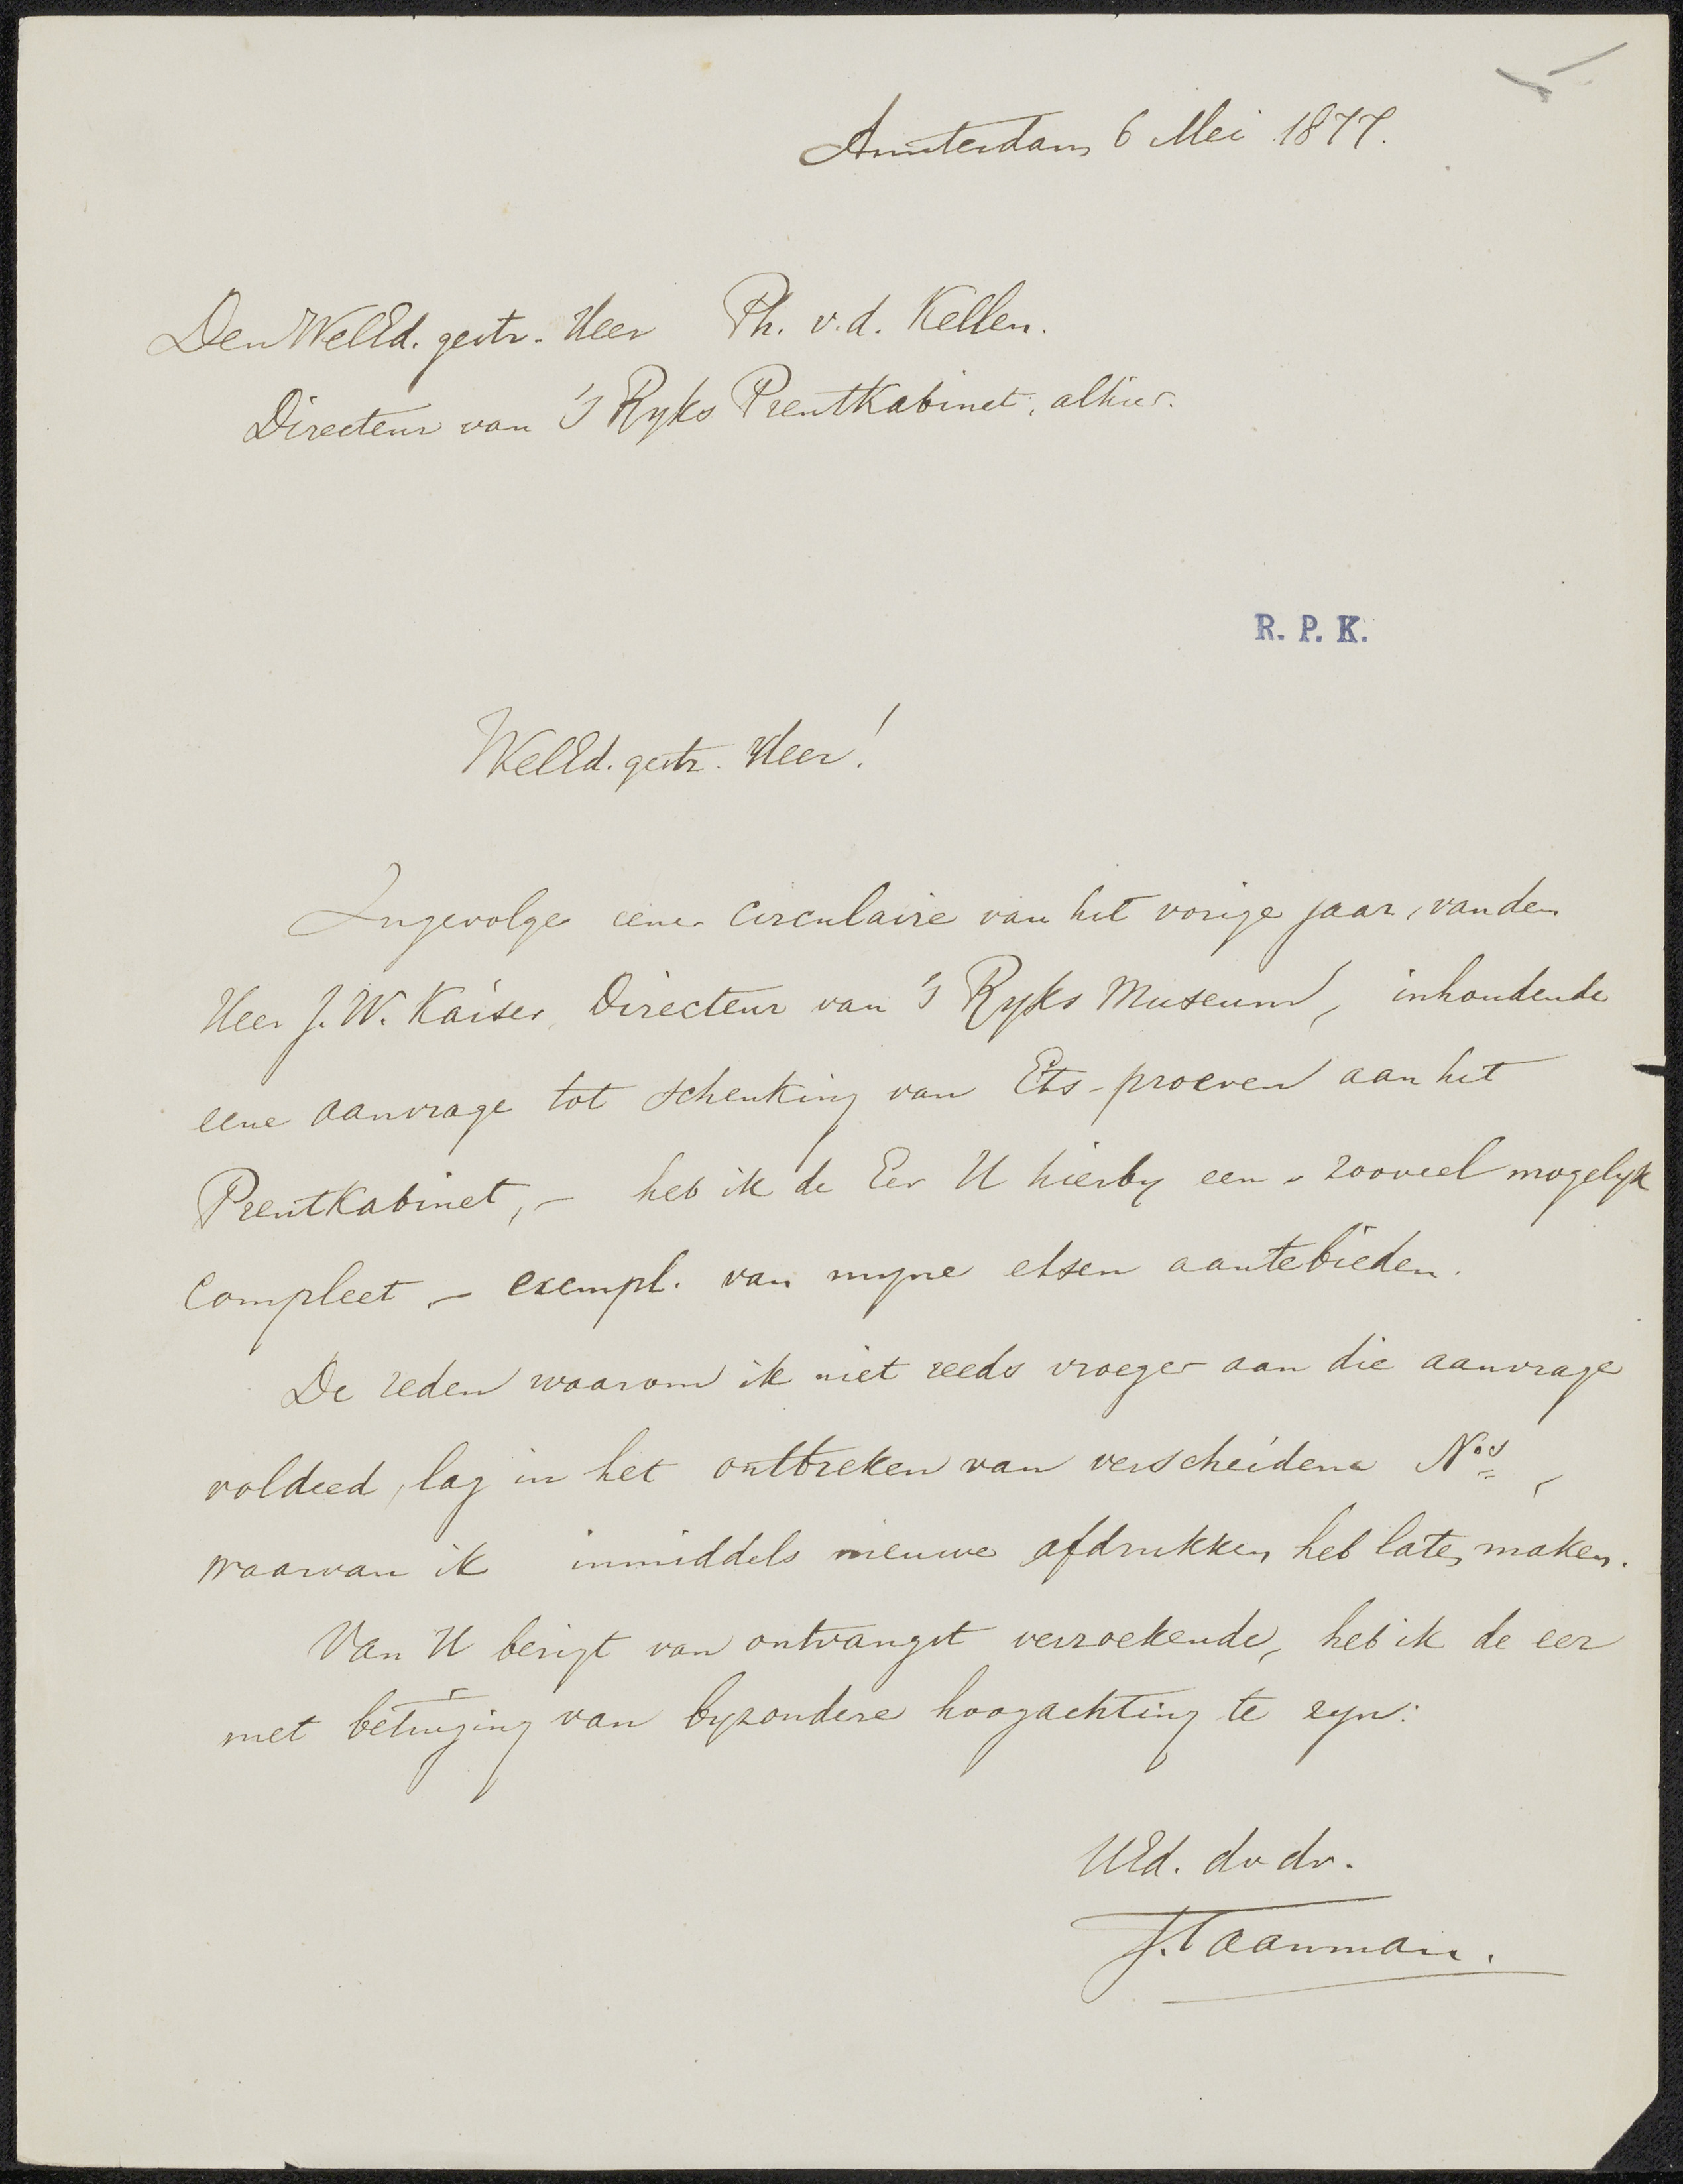 Amsterdam 6 Mei 1877.
Den WelEd. gestr. Heer Ph. v.d. Kellen.
Directeur van 's Ryks Prentkabinet, alhier.
R. P. K.
WelEd. gestr. Heer!
Ingevolge eener circulaire van het vorige jaar, van den
Heer J. W. Kaiser, Directeur van 's Ryks Museum, inhoudende
eene aanvrage tot schenking van Ets-proeven aan het
Prentkabinet, – heb ik de Eer U hierby een - zooveel mogelyk
compleet – exempl. van myne etsen aantebieden.
De reden waarom ik niet reeds vroeger aan die aanvrage
voldeed, lag in het ontbreken van verscheidene Nos,
waarvan ik inmiddels nieuwe afdrukken heb laten maken.
Van U berigt van ontvangst verzoekende, heb ik de eer
met betuiging van byzondere hoogachting te zyn:
UEd. dv dr.
J. Taanman.